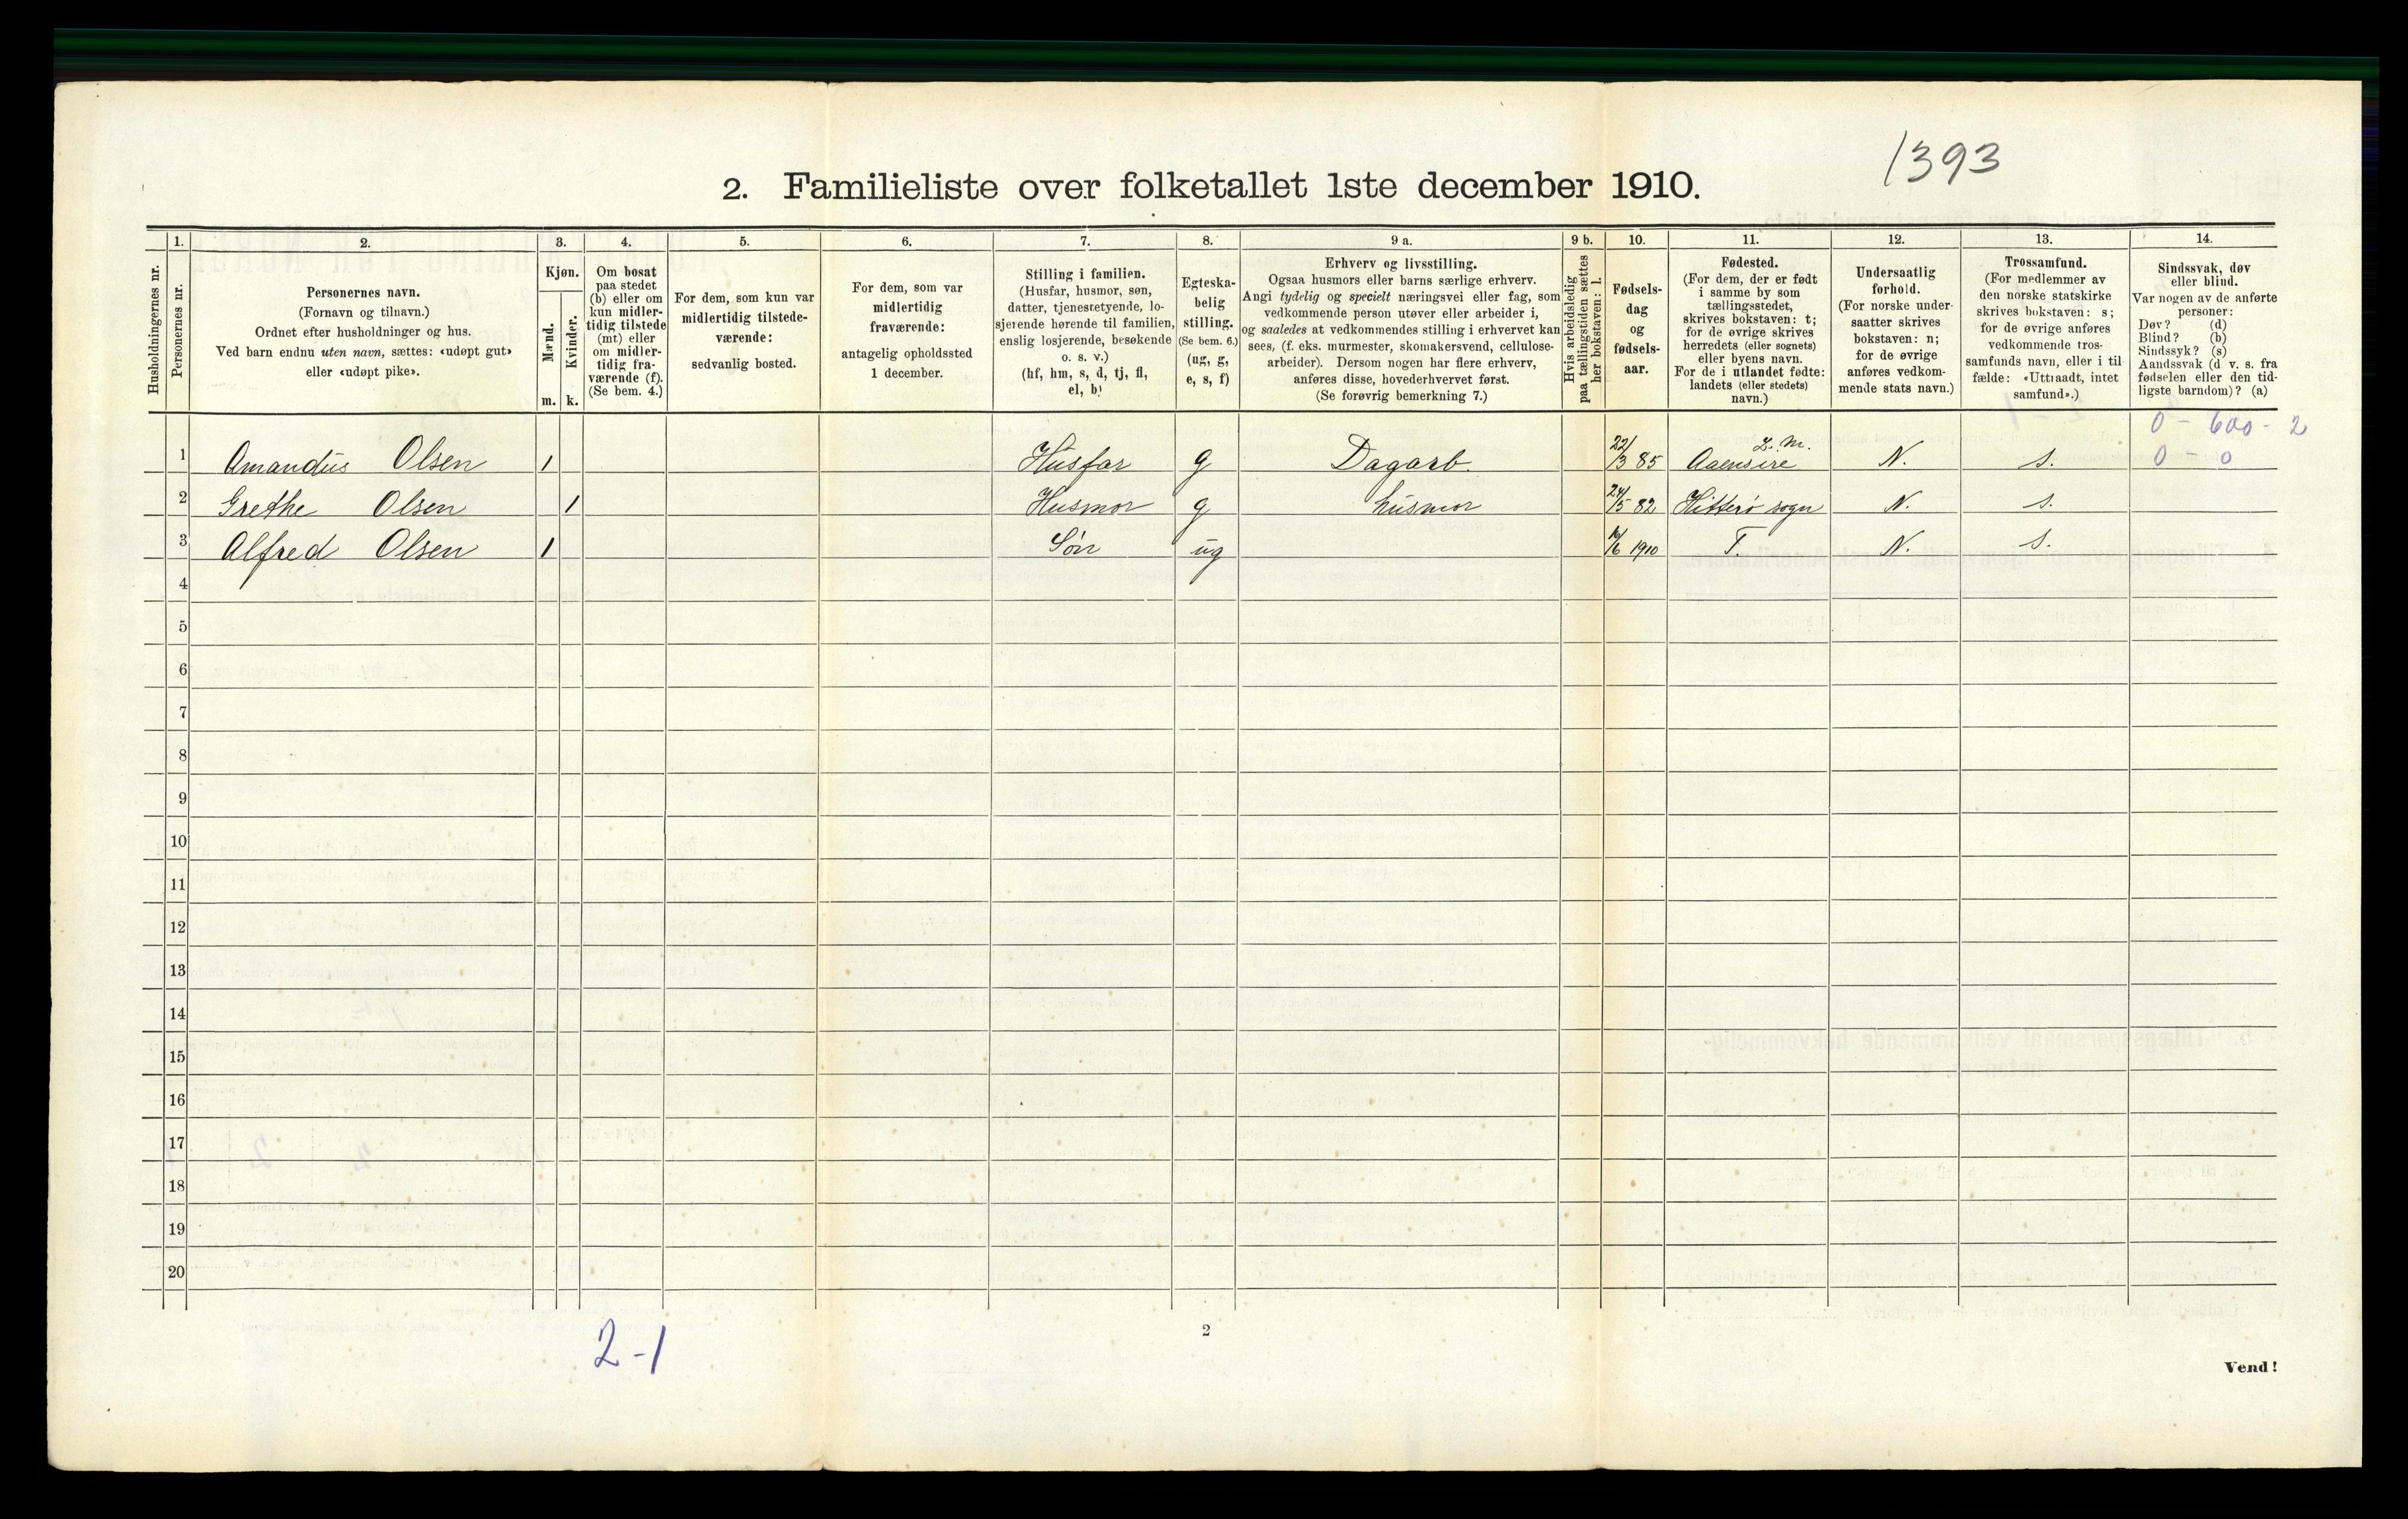 1393
2. Familieliste over folketallet 1ste december 1910.
Husholdningernes nr.
1.
Personernes nr.
2.
Personernes navn.
(Fornavn og tilnavn.)
Ordnet efter husholdninger og hus.
Ved barn endnu uten navn, sættes: «udøpt gut»
eller «udøpt pike».
3.
Kjøn.
Mænd.
Kvinder.
m. k.
4.
Om bosat
paa stedet
(b) eller om
kun midler-
tidig tilstede
(mt) eller
om midler-
tidig fra-
værende (f).
(Se bem. 4.)
5.
For dem, som kun var
midlertidig tilstede-
værende:
sedvanlig bosted.
6.
For dem, som var
midlertidig
fraværende:
antagelig opholdssted
1 december.
7.
Stilling i familien.
(Husfar, husmor, søn,
datter, tjenestetyende, lo-
sjerende hørende til familien,
enslig losjerende, besøkende
o. s. v.)
(hf, hm, s, d, tj, fl,
el, b)
8.
Egteska-
belig
stilling.
(Se bem. 6.)
(ug, g,
e, s, f)
9 a.
Erhverv og livsstilling.
Ogsaa husmors eller barns særlige erhverv.
Angi tydelig og specielt næringsvei eller fag, som
vedkommende person utøver eller arbeider i,
og saaledes at vedkommendes stilling i erhvervet kan
sees, (f. eks. murmester, skomakersvend, cellulose-
arbeider). Dersom nogen har flere erhverv,
anføres disse, hovederhvervet først.
(Se forøvrig bemerkning 7.)
9 b.
Hvis arbeidsledig
paa tællingstiden sættes
her bokstaven: l.
10.
Fødsels-
dag
og
fødsels-
aar.
11.
Fødested.
(For dem, der er født
i samme by som
tællingsstedet,
skrives bokstaven: t;
for de øvrige skrives
herredets (eller sognets)
eller byens navn.
For de i utlandet fødte:
landets (eller stedets)
navn.)
12.
Undersaatlig
forhold.
(For norske under-
saatter skrives
bokstaven: n;
for de øvrige
anføres vedkom-
mende stats navn.)
13.
Trossamfund.
(For medlemmer av
den norske statskirke
skrives bokstaven: s;
for de øvrige anføres
vedkommende tros-
samfunds navn, eller i til-
fælde: «Uttraadt, intet
samfund».)
14.
Sindssvak, døv
eller blind.
Var nogen av de anførte
personer:
Døv? (d)
Blind? (b)
Sindssyk? (s)
Aandssvak (d v. s. fra
fødselen eller den tid-
ligste barndom)? (a)
0 - 600 - 2
1 Amandus Olsen 1 Husfar g Dagarb. 22/3 85 Aaensire L.M. N. s. 0 - 0
2 Grethe Olsen 1 Husmor g husmor 24/5 82 Hitterø sogn N. s.
3 Alfred Olsen 1 Søn ug /6 1910 T. N. s.
4
5
6
7
8
9
10
11
12
13
14
15
16
17
18
19
20
2-1
2
Vend!